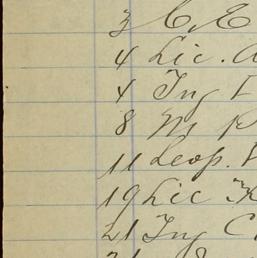 3 C. E
4 Lic. A
4 Ing
8 M. P
11 Leop.
19 Lic
21 Ing C